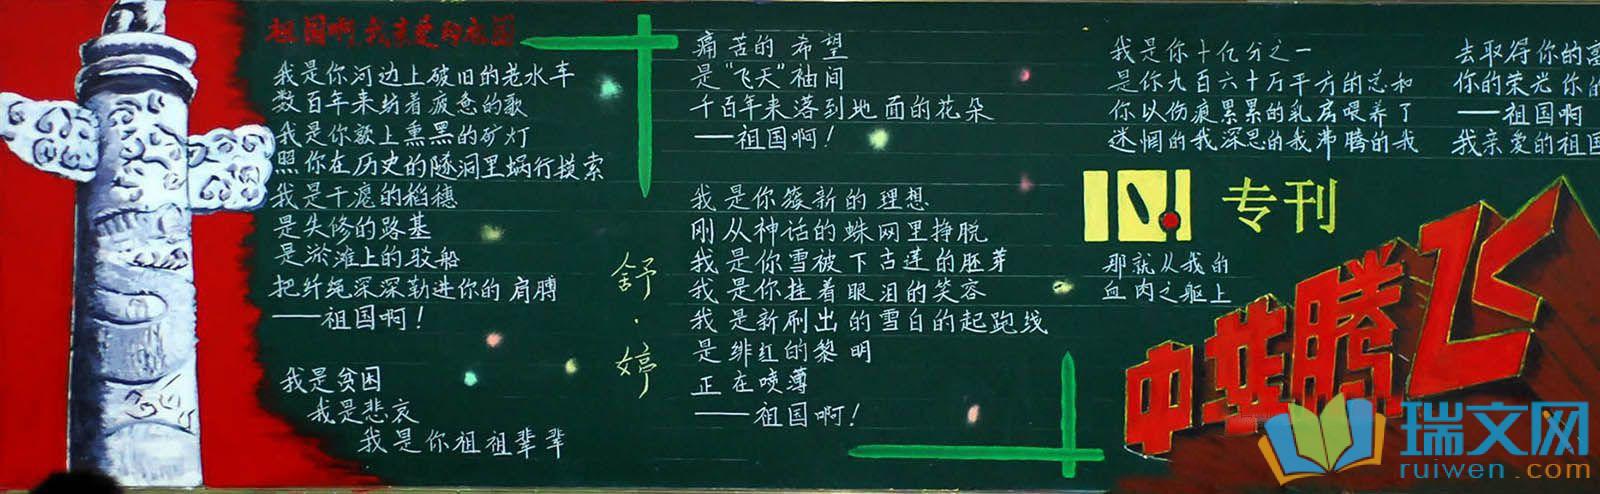 祖国啊,我亲爱的祖国
我是你河边上破旧的老水车
数百年来纺着疲惫的歌
我是你额上熏黑的矿灯
照你在历史的隧洞里蜗行摸索
我是干瘪的稻穗
是失修的路基
是淤滩上的驳船
把纤绳深深勒进你的肩膊
——祖国啊!
我是贫困
我是悲哀
我是你祖祖辈辈
舒·婷
痛苦的希望
是“飞天”袖间
千百年来落到地面的花朵
——祖国啊!
我是你簇新的理想
刚从神话的蛛网里挣脱
我是你雪被下古莲的胚芽
我是你挂着眼泪的笑容
我是新刷出的雪白的起跑线
是绯红的黎明
正在喷薄
——祖国啊!
我是你十亿分之一
是你九百六十万平方的总和
你以伤痕累累的乳房喂养了
迷惘的我深思的我沸腾的我
专刊
那就从我的
血肉之躯上
去取得你的
你的荣光你的
——祖国啊
我亲爱的祖国
中共腾飞
瑞文网
ruiwen.com